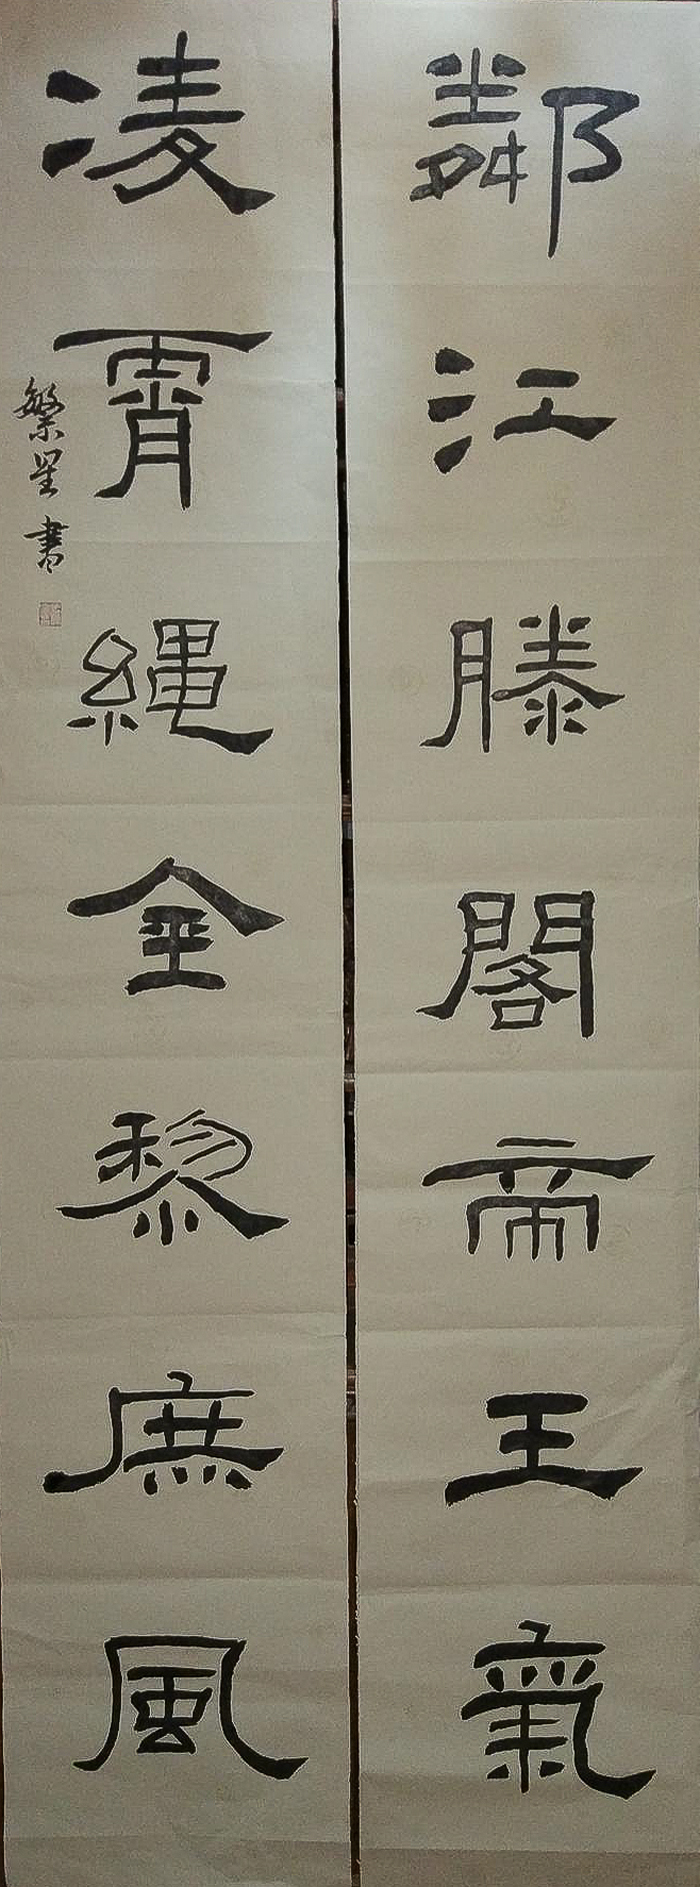 鄰江滕閣帝王氣
凌霄繩金黎庶風
繁星書